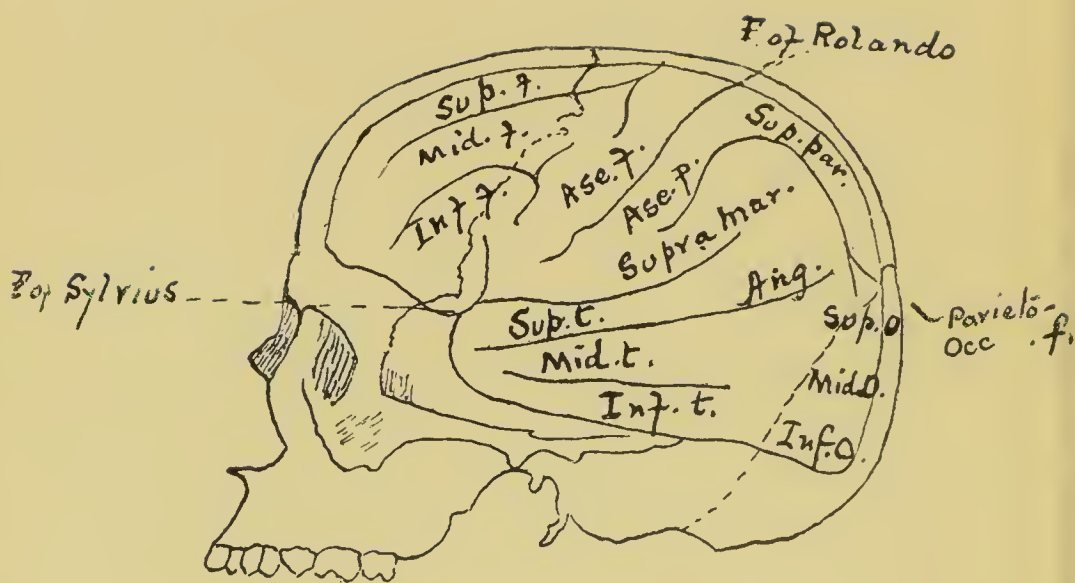 F of Rolando
Sup. f.
Mid. f.
Inf f.
Asc. f.
Asc. p.
Sup. par.
Supra mar.
Ang.
F of Sylvius
Sup. t.
Mid. t.
Inf. t.
Sup. O
Mid. O.
Inf. O.
Parieto-
Occ. f.